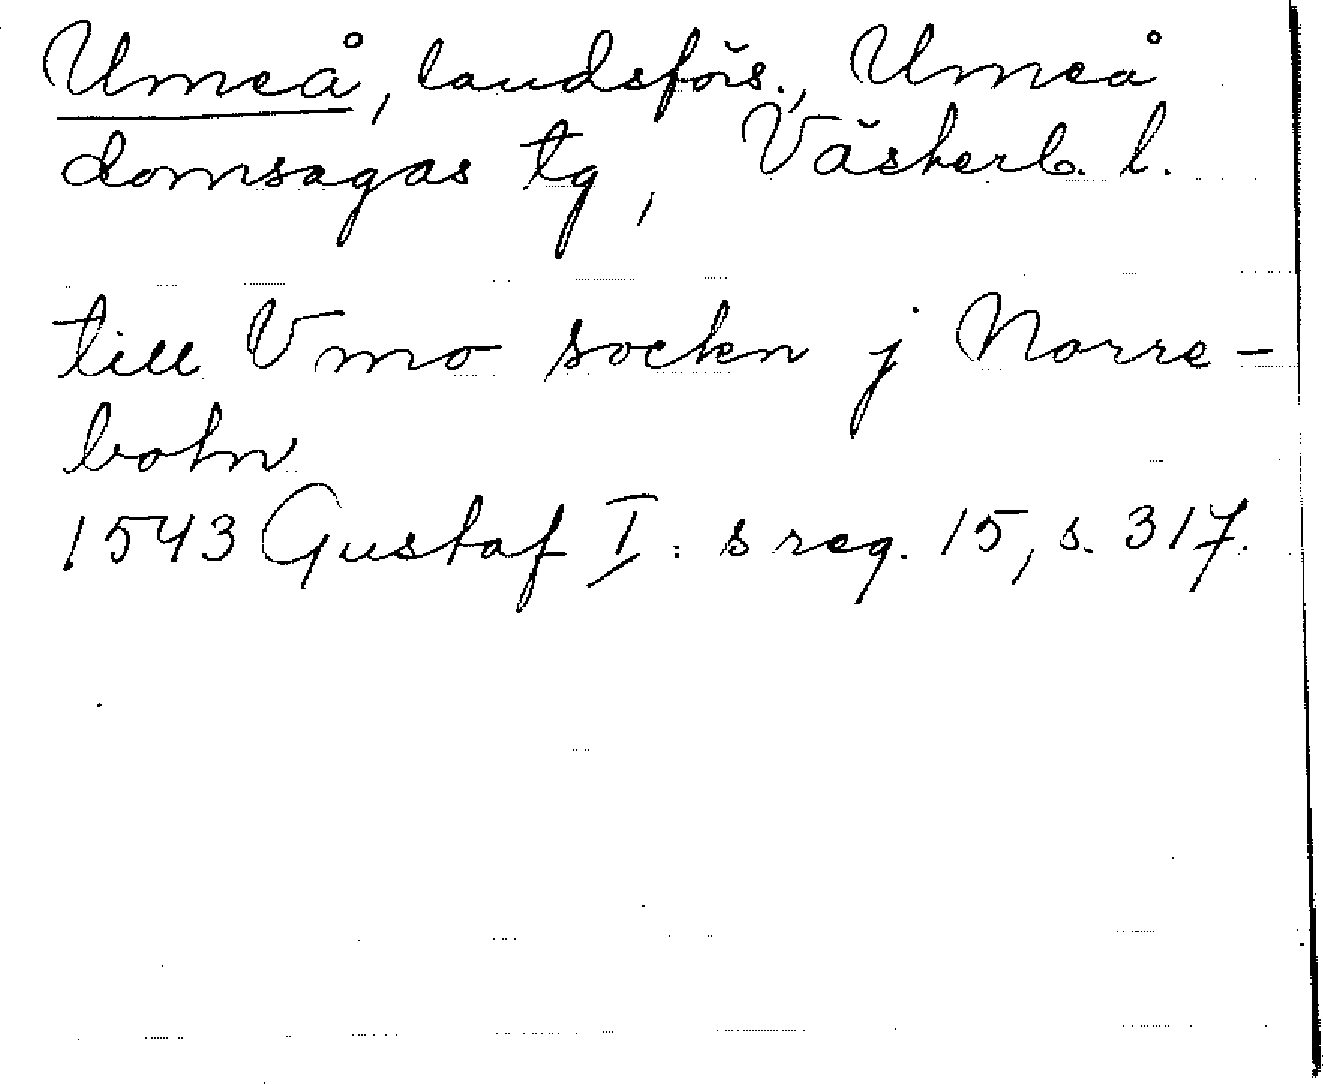 Umeå, landsförs., Umeå
domsagas tg, Västerb. l.
till Vmo sockn j Norre-
botn
1543 Gustaf I:s reg. 15, s. 317.